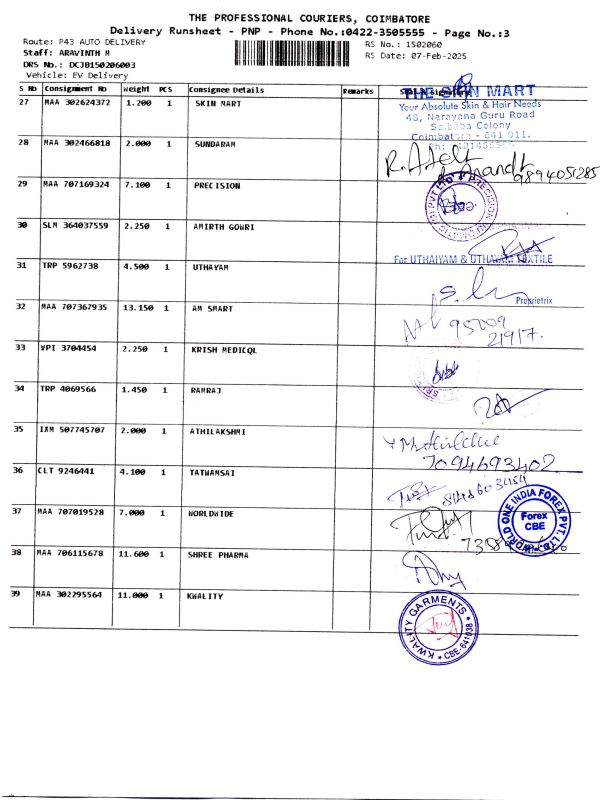 THE PROFESSIONAL COURIERS, COIMBATORE
Delivery Runsheet - PNP - Phone No.:0422-3505555 - Page No.:3
Route: P43 AUTO DELIVERY
RS No.: 1502060
Staff: ARAVINTH M
RS Date: 07-Feb-2025
DRS No.: DCJB150206003
Vehicle: EV Delivery
S No Consignment No Weight PCS Consignee Details Remarks
27 MAA 302624372 1.200 1 SKIN MART
THE SKIN MART
Your Absolute Skin & Hair Needs
48, Narayana Guru Road
Saibaba Colony
Coimbatore - 641 011.
28 MAA 302466818 2.000 1 SUNDARAM
9894051285
29 MAA 707169324 7.100 1 PRECISION
30 SLM 364037559 2.250 1 AMIRTH GOWRI
31 TRP 5962738 4.500 1 UTHAYAM
For UTHAIYAM & UTHAYAM TEXTILE
Proprietrix
32 MAA 707367935 13.150 1 AM SMART
33 VPI 3704454 2.250 1 KRISH MEDICQL
34 TRP 4069566 1.450 1 RAMRAJ
35 IXM 507745707 2.000 1 ATHILAKSHMI
7094693402
36 CLT 9246441 4.100 1 TATWAMSAI
37 MAA 707019528 7.000 1 WORLDWIDE
WORLD ONE INDIA FOREX PVT. LTD.
Forex
CBE
38 MAA 706115678 11.600 1 SHREE PHARMA
39 MAA 302295564 11.000 1 KWALITY
KWALITY GARMENTS
CBE-641038